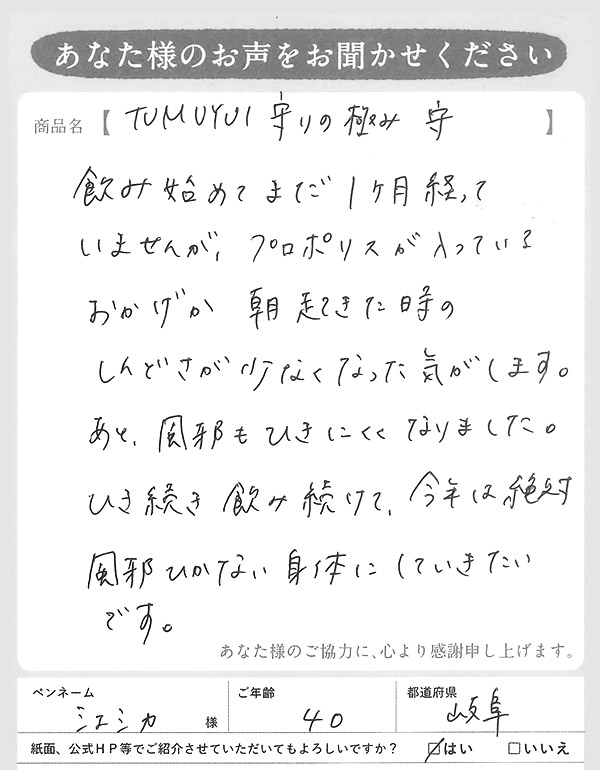 あなた様のお声をお聞かせください
商品名【 TUMUYUI 守りの極み 守 】
飲み始めてまだ1ヶ月経って
いませんが、プロポリスが入っている
おかげか 朝起きた時の
しんどさが少なくなった気がします。
あと、風邪もひきにくくなりました。
ひき続き飲み続けて、今年は絶対
風邪ひかない身体にしていきたい
です。
あなた様のご協力に、心より感謝申し上げます。
ペンネーム ご年齢 都道府県
ジェシカ 様 40 岐阜
紙面、公式HP等でご紹介させていただいてもよろしいですか? ☑はい □いいえ